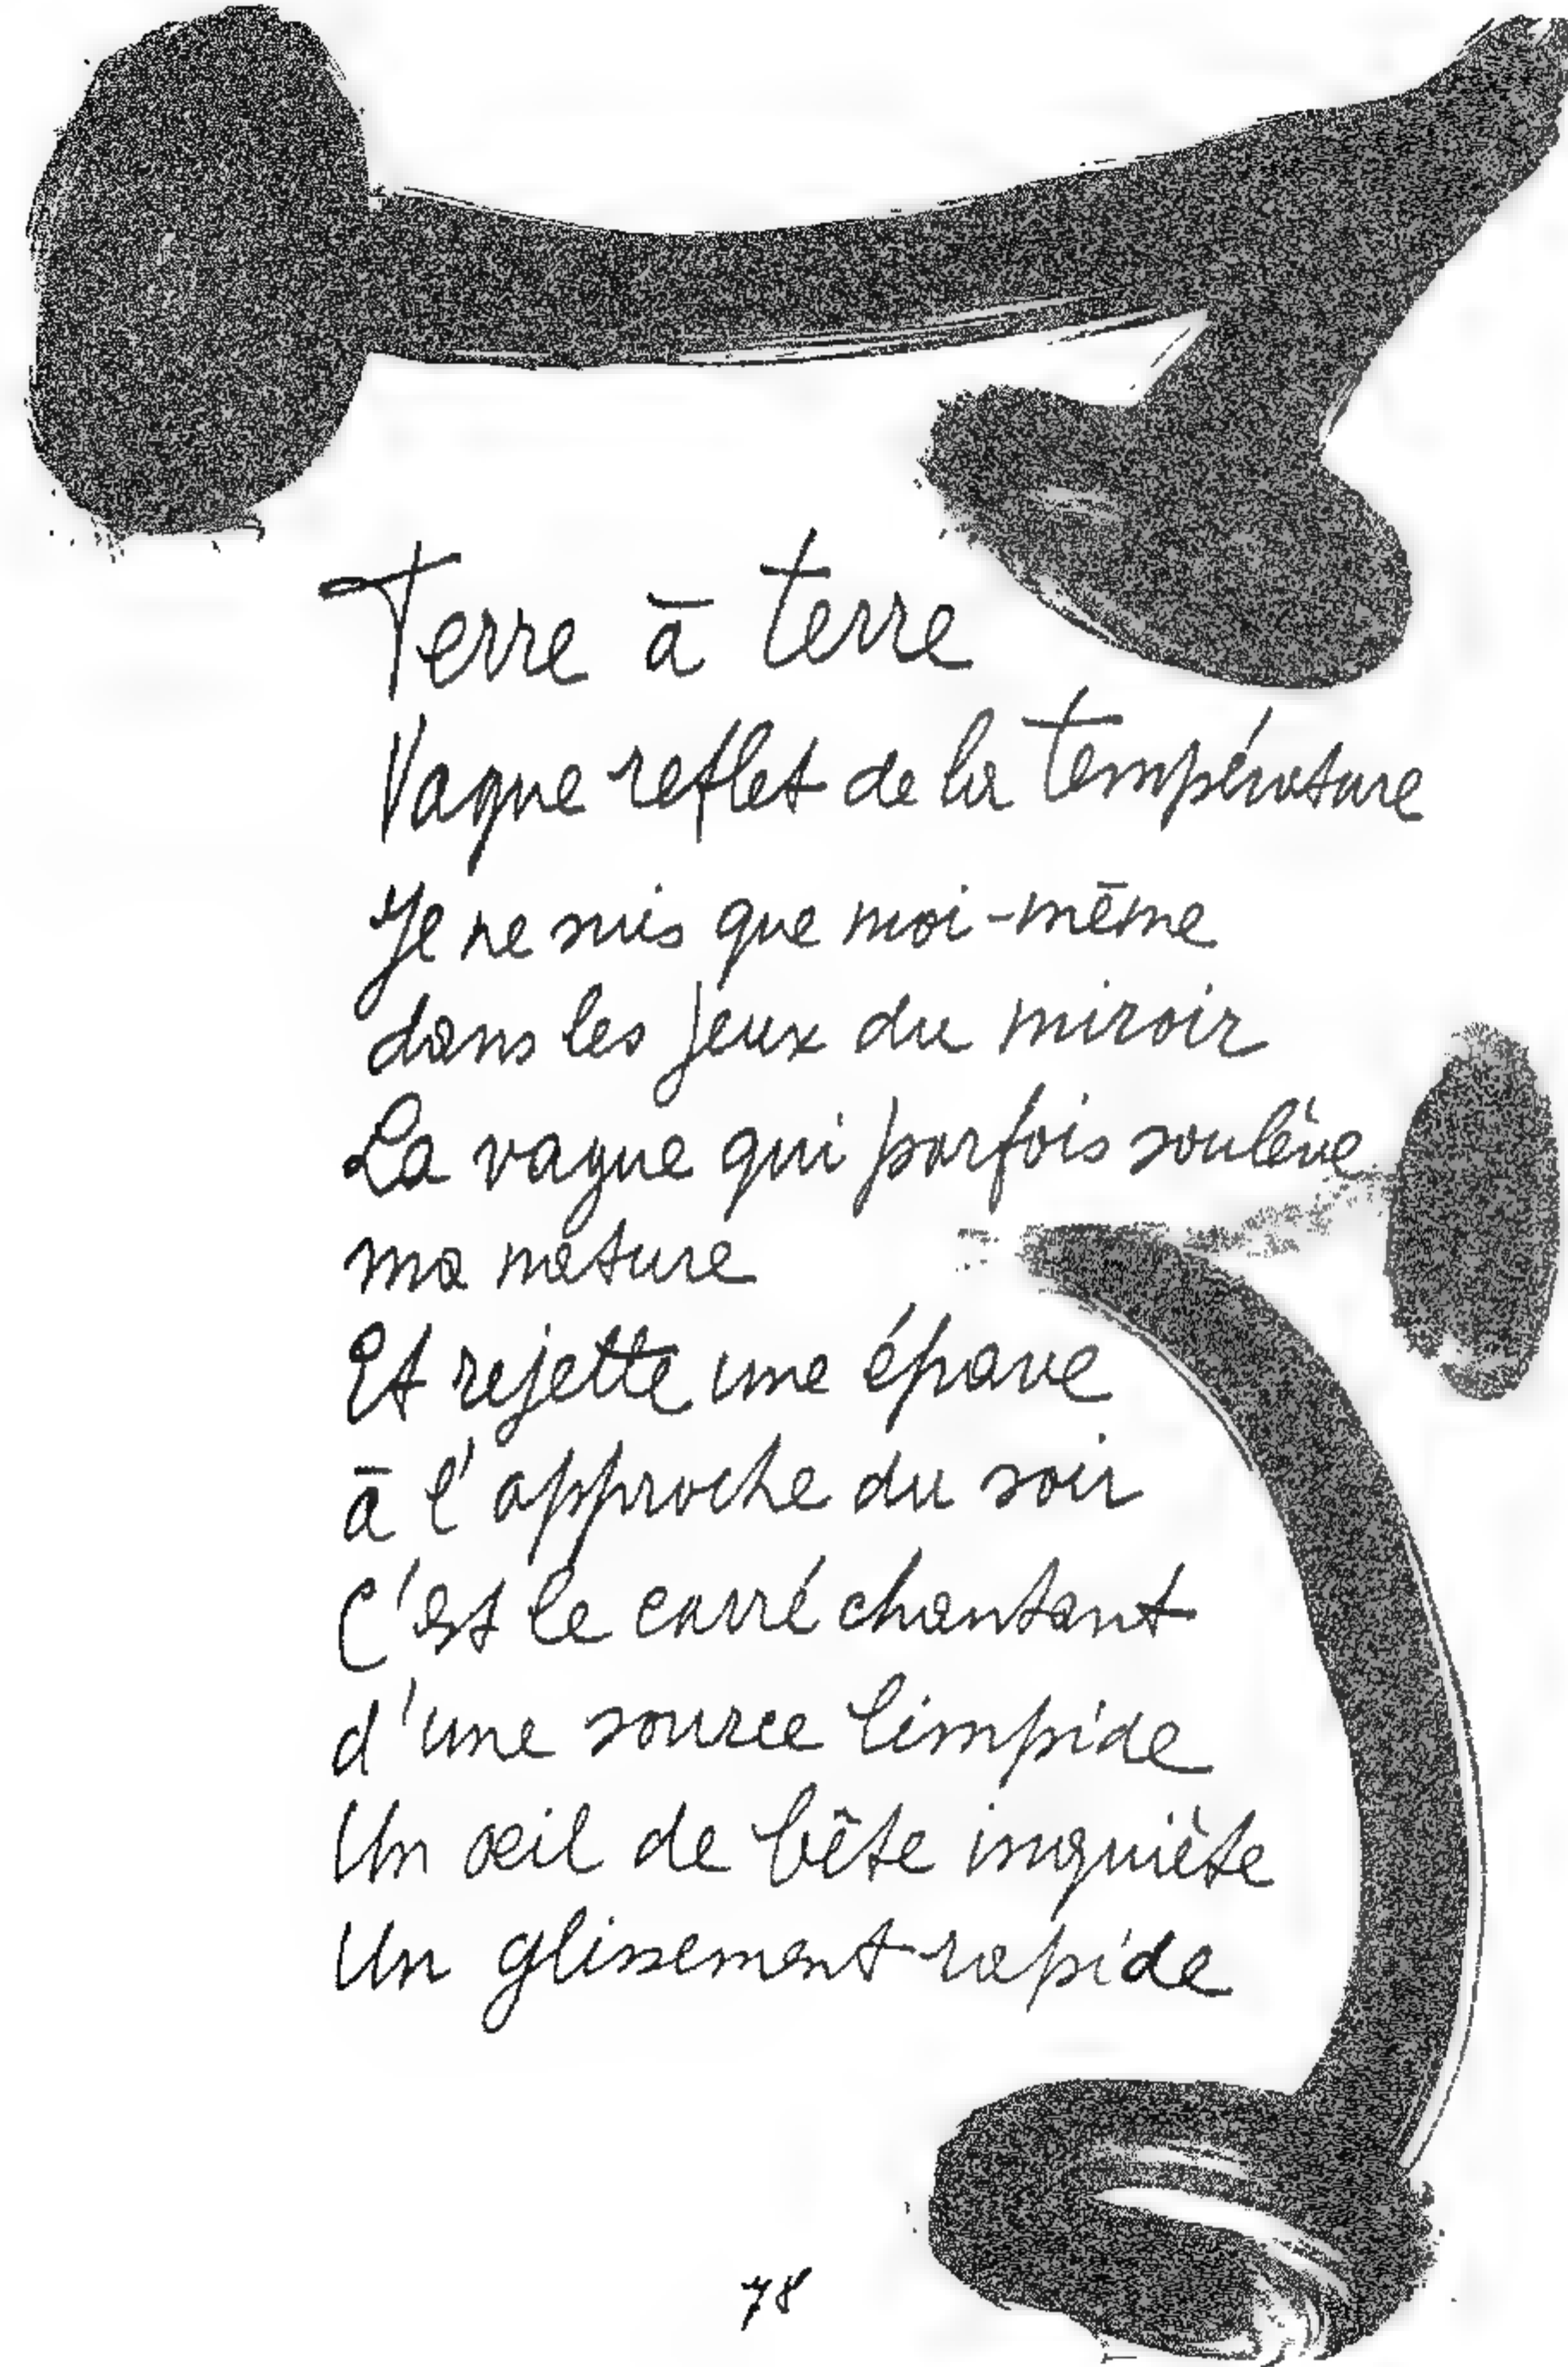 Terre à terre
Vague reflet de la température
Je ne suis que moi-même
dans les jeux du miroir
La vague qui parfois soulève
ma nature
Et rejette une épave
à l'approche du soir
C'est le carré chantant
d'une source limpide
Un œil de bête inquiète
Un glissement rapide
78